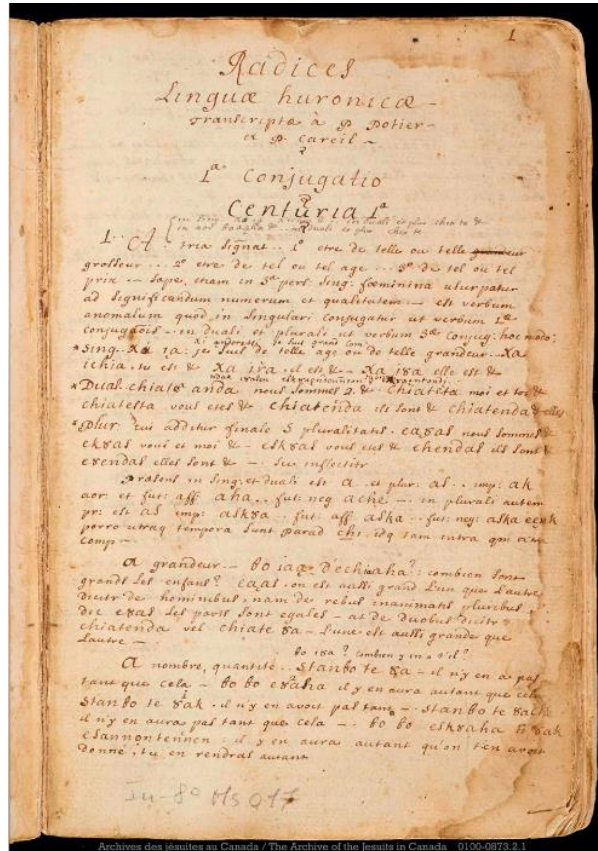 1
Radices
Linguæ huronicæ -
Transcriptæ à P. Potier -
a P. Careil -
1ª Conjugatio
Centuria 1ª
1.. A tria signat .. 1º etre de telle ou telle
grosseur ... 2º etre de tel ou tel age ... 3º de tel ou tel
prix -- sæpe, etiam in 3ª pers. sing: fœminina usurpatur
ad significandum numerum et qualitatem -- est verbum
anomalum quod in singulari conjugatur ut verbum 1æ
in duali et plurali ut verbum 3æ conjug: hoc modo:
Sing.. xa ia: je suis de telle age ou de telle grandeur - xa
ichia, tu es & xa ira, il est & - xa isa elle est &
Dual: chiate anda nous sommes 2. & chiatita moi et toi &
chiatesta vous etes & chiatenda ils sont & chiatenda & elles
plur: cui additur finale S pluralitatis. eaȣas nous sommes &
ekȣas vous et moi & - eskȣas vous etes & ehendas ils sont &
eȣendas elles sont & -- sic
Præsens in sing: et duali est a. et plur: as .. imp: ak
aor: et fut: aff: aha .. fut: neg ache -- in plurali autem
pr: est as imp: askȣa .. fut: aff: aska .. fut: neg: aska
porro utraq tempora sunt
comp --
A grandeur --
grands les enfans? eaȣas. on est aussi grand l'un que l'autre
dicitr de hominibus, nam de rebus inanimatis pluribus
dic eȣas les parts sont egales - at de duobus dicitr
chiatenda vel chiate ȣa - l'une est aussi grande que
l'autre --
ȣo iȣa? combien y en a t'il?
A nombre, quantité .. stanȣo te ȣa - il n'y en a pas
tant que cela - ȣo ȣo eȣaha il y en aura autant que cela
stanȣo te ȣak. il n'y en avoit pas tant -- stanȣo te ȣache
il n'y en aura pas tant que cela -- ȣo ȣo eskȣaha ti ȣak
esannontennen : il y en aura autant qu'on t'en avoit
donné, tu en rendras autant
In-8º Ms 017
Archives des jésuites au Canada / The Archive of the Jesuits in Canada 0100-0873.2.1